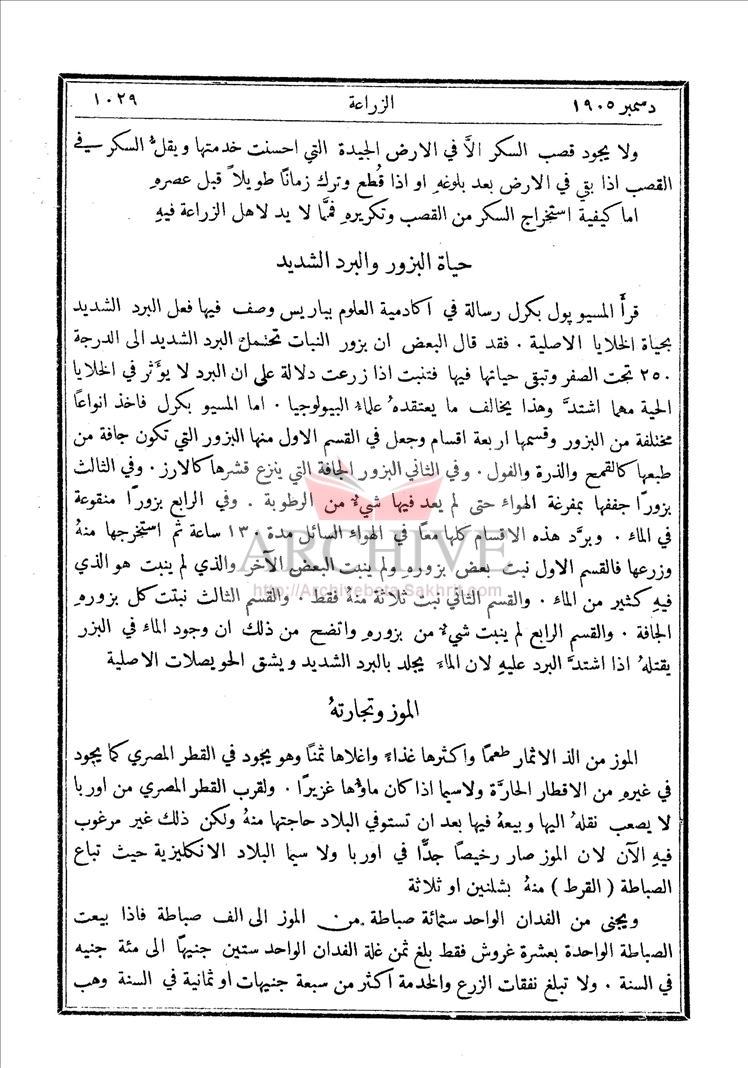 دسمبر ١٩٠٥
الزراعة
١٠٢٩
ولا يجود قصب السكر الاَّ في الارض الجيدة التي احسنت خدمتها ويقلُّ السكر في
القصب اذا بقي في الارض بعد بلوغهِ او اذا قُطع وترك زمانًا طويلاً قبل عصرهِ
اما كيفية استخراج السكر من القصب وتكريرهِ فممَّا لا يد لاهل الزراعة فيهِ
حياة البزور والبرد الشديد
قرأَ المسيو پول بكرل رسالة في اكادمية العلوم بباريس وصف فيها فعل البرد الشديد
بحياة الخلايا الاصلية . فقد قال البعض ان بزور النبات تحتمل البرد الشديد الى الدرجة
٢٥٠ تحت الصفر وتبقى حياتها فيها فتنبت اذا زرعت دلالة على ان البرد لا يوَّثر في الخلايا
الحية مهما اشتدَّ وهذا يخالف ما يعتقدهُ علماءُ البيولوجيا . اما المسيو بكرل فاخذ انواعًا
مختلفة من البزور وقسمها اربعة اقسام وجعل في القسم الاول منها البزور التي تكون جافة من
طبعها كالقمح والذرة والفول . وفي الثاني البزور الجافة التي ينزع قشرها كالارز . وفي الثالث
بزورًا جففها بمفرغة الهواء حتى لم يعد فيها شيءٌ من الرطوبة . وفي الرابع بزورًا منقوعة
في الماء . وبرَّد هذه الاقسام كلها معًا في الهواء السائل مدة ١٣٠ ساعة ثم استخرجها منهُ
وزرعها فالقسم الاول نبت بعض بزورهِ ولم ينبت البعض الآخر والذي لم ينبت هو الذي
فيهِ كثير من الماء . والقسم الثاني نبت ثلاثة منهُ فقط . والقسم الثالث نبتت كل بزورهِ
الجافة . والقسم الرابع لم ينبت شيءٌ من بزورهِ واتضح من ذلك ان وجود الماء في البزر
يقتلهُ اذا اشتدَّ البرد عليهِ لان الماءَ يجلد بالبرد الشديد ويشق الحويصلات الاصلية
ARCHIVE
http://Archivebeta.Sakhrit.com
الموز وتجارتهُ
الموز من الذ الاثمار طعمًا واكثرها غذاءً واغلاها ثمنًا وهو يجود في القطر المصري كما يجود
في غيرهِ من الاقطار الحارَّة ولاسيما اذا كان ماؤُها غزيرًا . ولقرب القطر المصري من اوربا
لا يصعب نقلهُ اليها وبيعهُ فيها بعد ان تستوفي البلاد حاجتها منهُ ولكن ذلك غير مرغوب
فيهِ الآن لان الموز صار رخيصًا جدًّا في اوربا ولا سيما البلاد الانكليزية حيث تباع
الصباطة ( القرط ) منهُ بشلنين او ثلاثة
ويجنى من الفدان الواحد ستمائة صباطة من الموز الى الف صباطة فاذا بيعت
الصباطة الواحدة بعشرة غروش فقط بلغ ثمن غلة الفدان الواحد ستين جنيهًا الى مئة جنيه
في السنة . ولا تبلغ نفقات الزرع والخدمة اكثر من سبعة جنيهات او ثمانية في السنة وهب